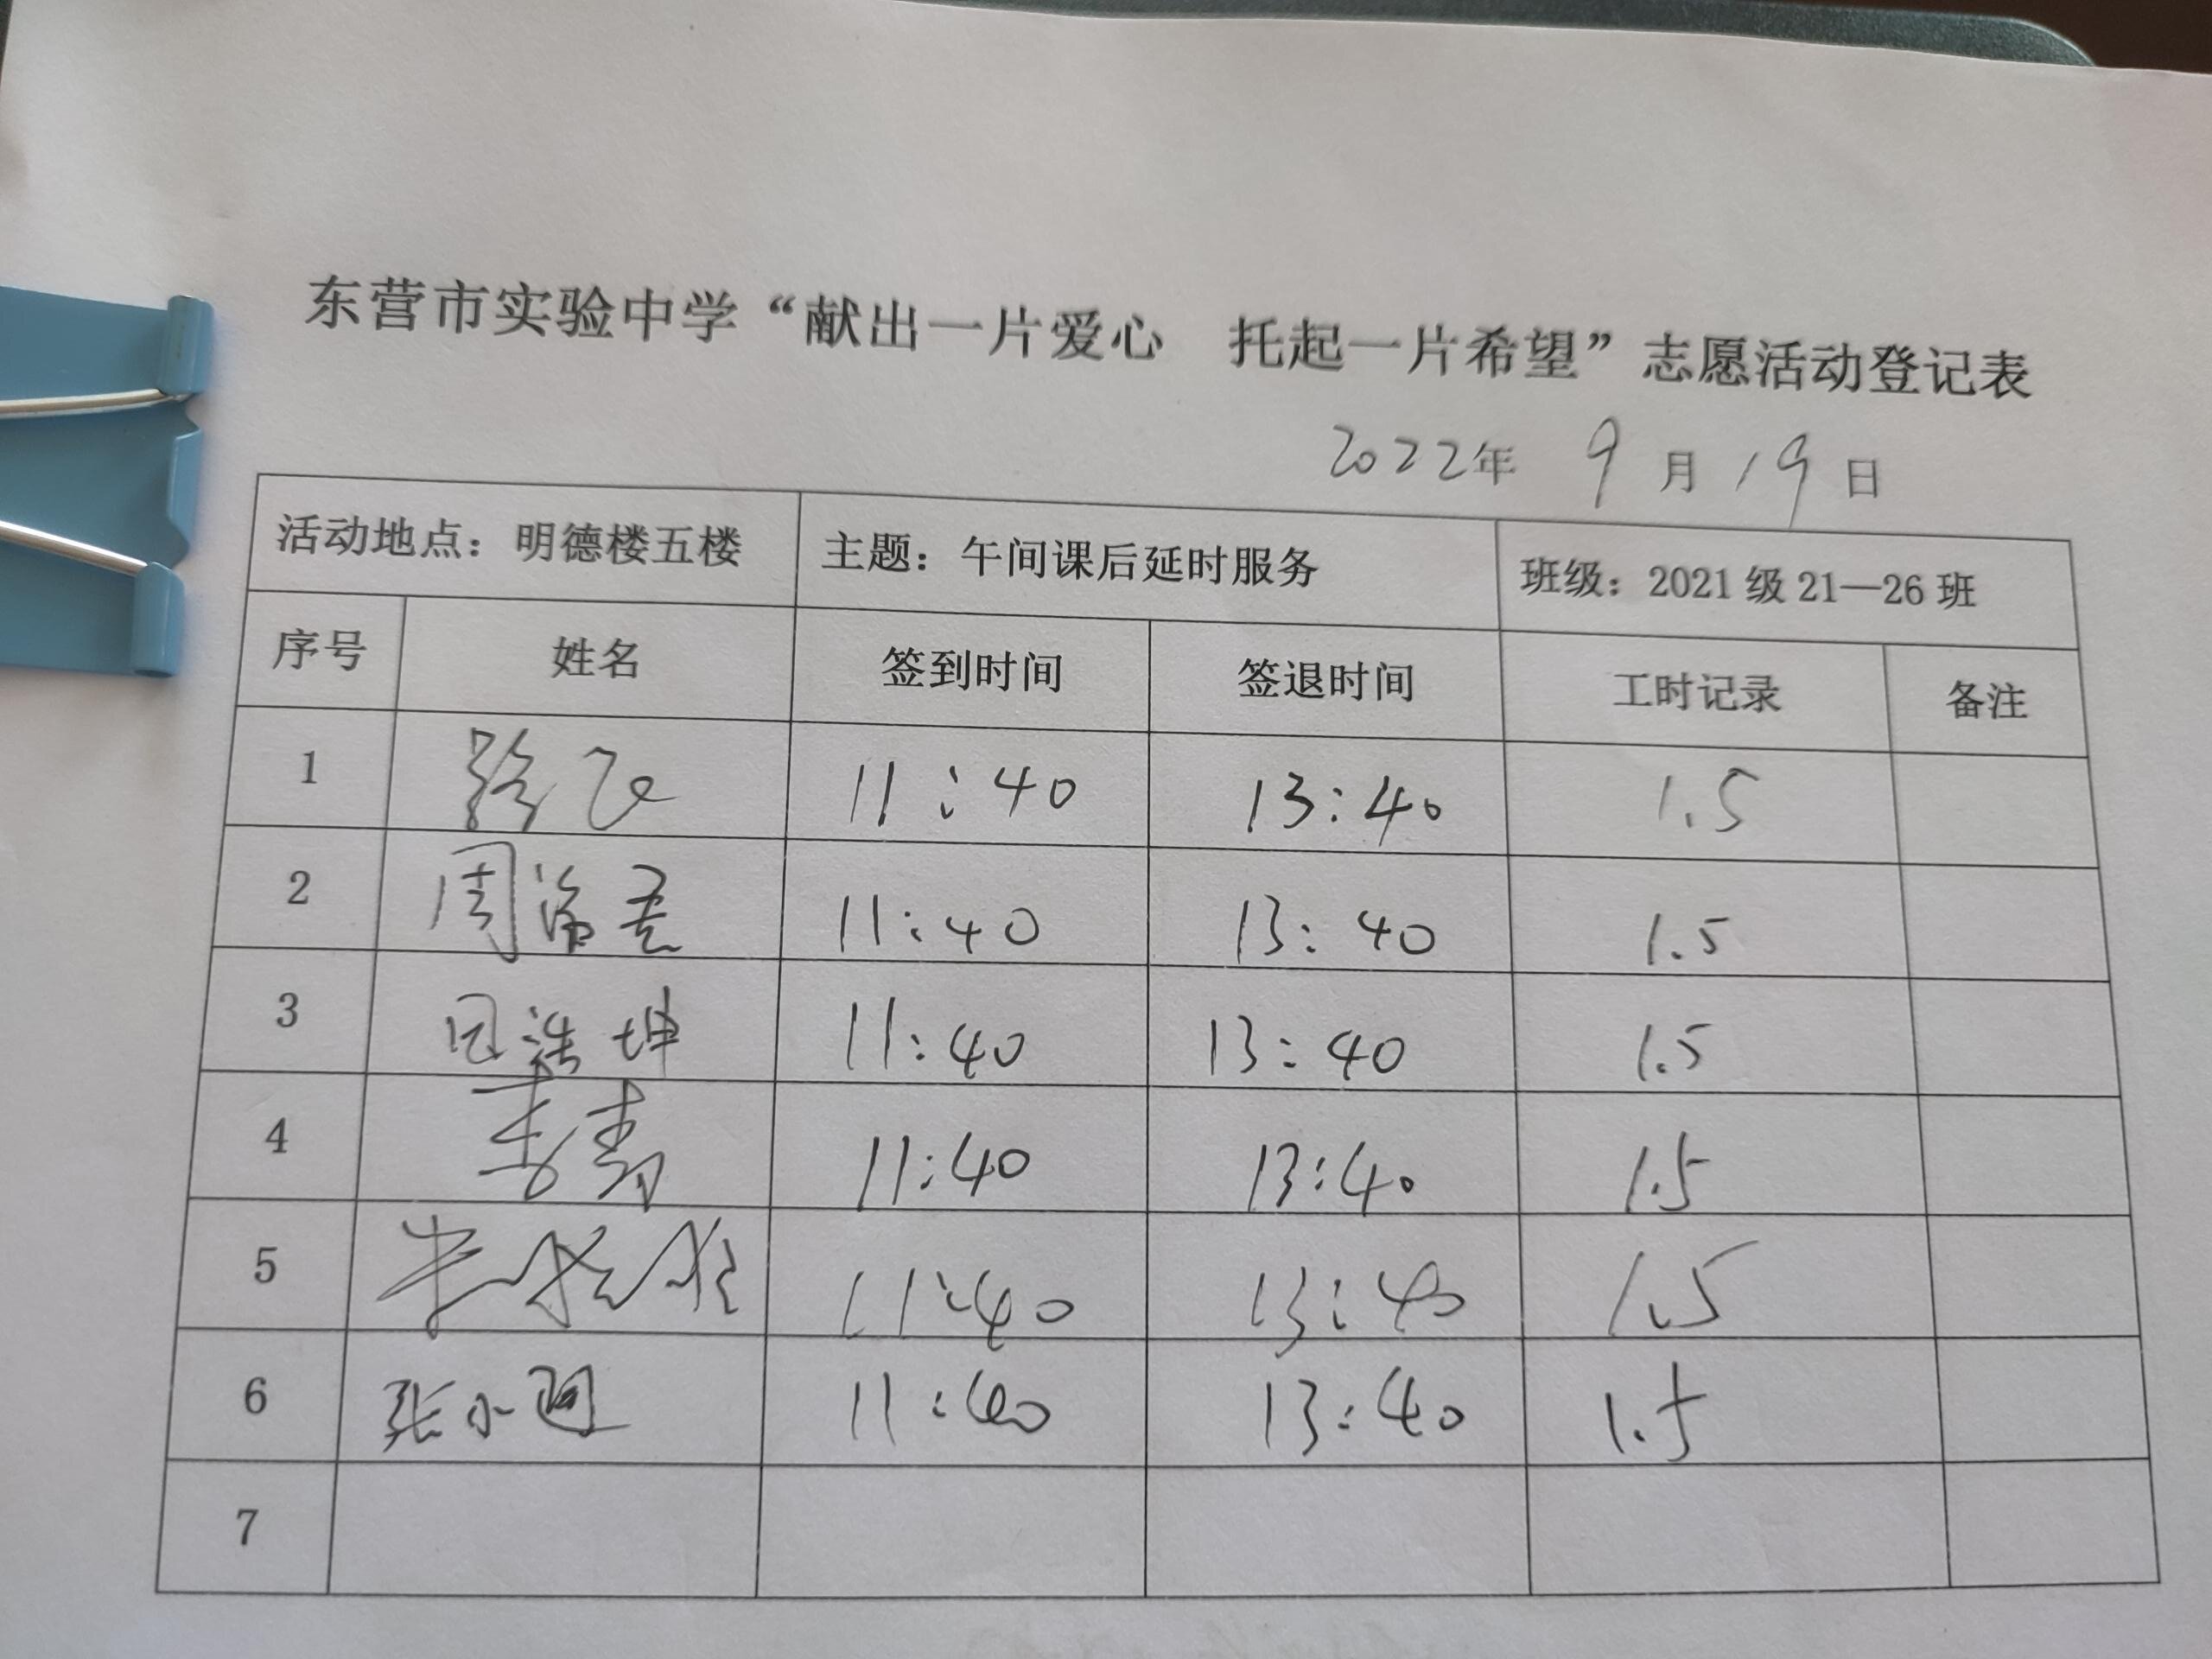 东营市实验中学“献出一片爱心 托起一片希望”志愿活动登记表
2022年 9 月 19 日
活动地点：明德楼五楼 主题：午间课后延时服务 班级：2021级21—26班
序号 姓名 签到时间 签退时间 工时记录 备注
1 11:40 13:40 1.5
2 周 11:40 13:40 1.5
3 浩坤 11:40 13:40 1.5
4 李青 11:40 13:40 1.5
5 11:40 13:40 1.5
6 张小 11:40 13:40 1.5
7